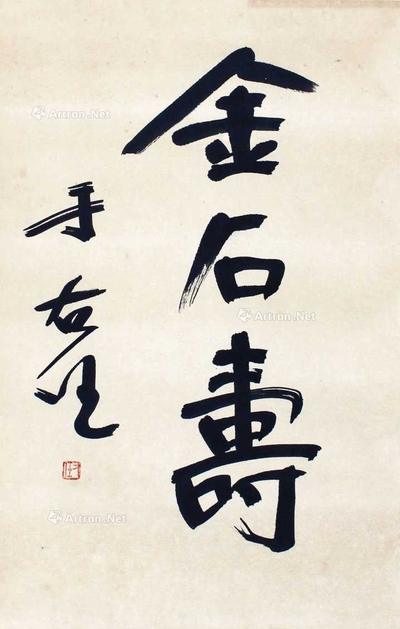 金石壽
于右任
Artron.Net
Artron.Net
Artron.Net